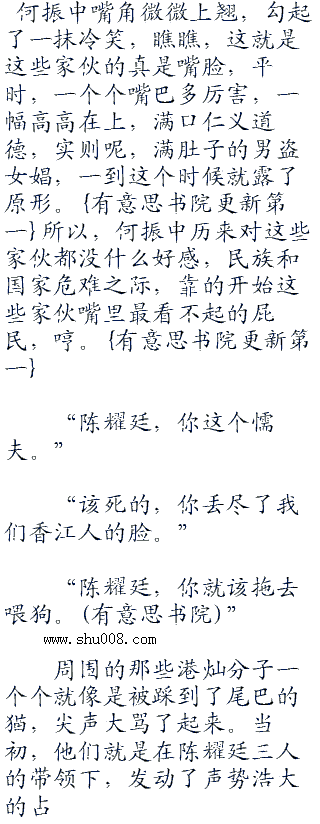 何振中嘴角微微上翘，勾起
了一抹冷笑，瞧瞧，这就是
这些家伙的真是嘴脸，平
时，一个个嘴巴多厉害，一
幅高高在上，满口仁义道
德，实则呢，满肚子的男盗
女娼，一到这个时候就露了
原形。{有意思书院更新第
一}所以，何振中历来对这些
家伙都没什么好感，民族和
国家危难之际，靠的开始这
些家伙嘴里最看不起的屁
民，哼。{有意思书院更新第
一}
“陈耀廷，你这个懦
夫。”
“该死的，你丢尽了我
们香江人的脸。”
“陈耀廷，你就该拖去
喂狗。(有意思书院)”
www.shu008.com
周围的那些港灿分子一
个个就像是被踩到了尾巴的
猫，尖声大骂了起来。当
初，他们就是在陈耀廷三人
的带领下，发动了声势浩大
的占